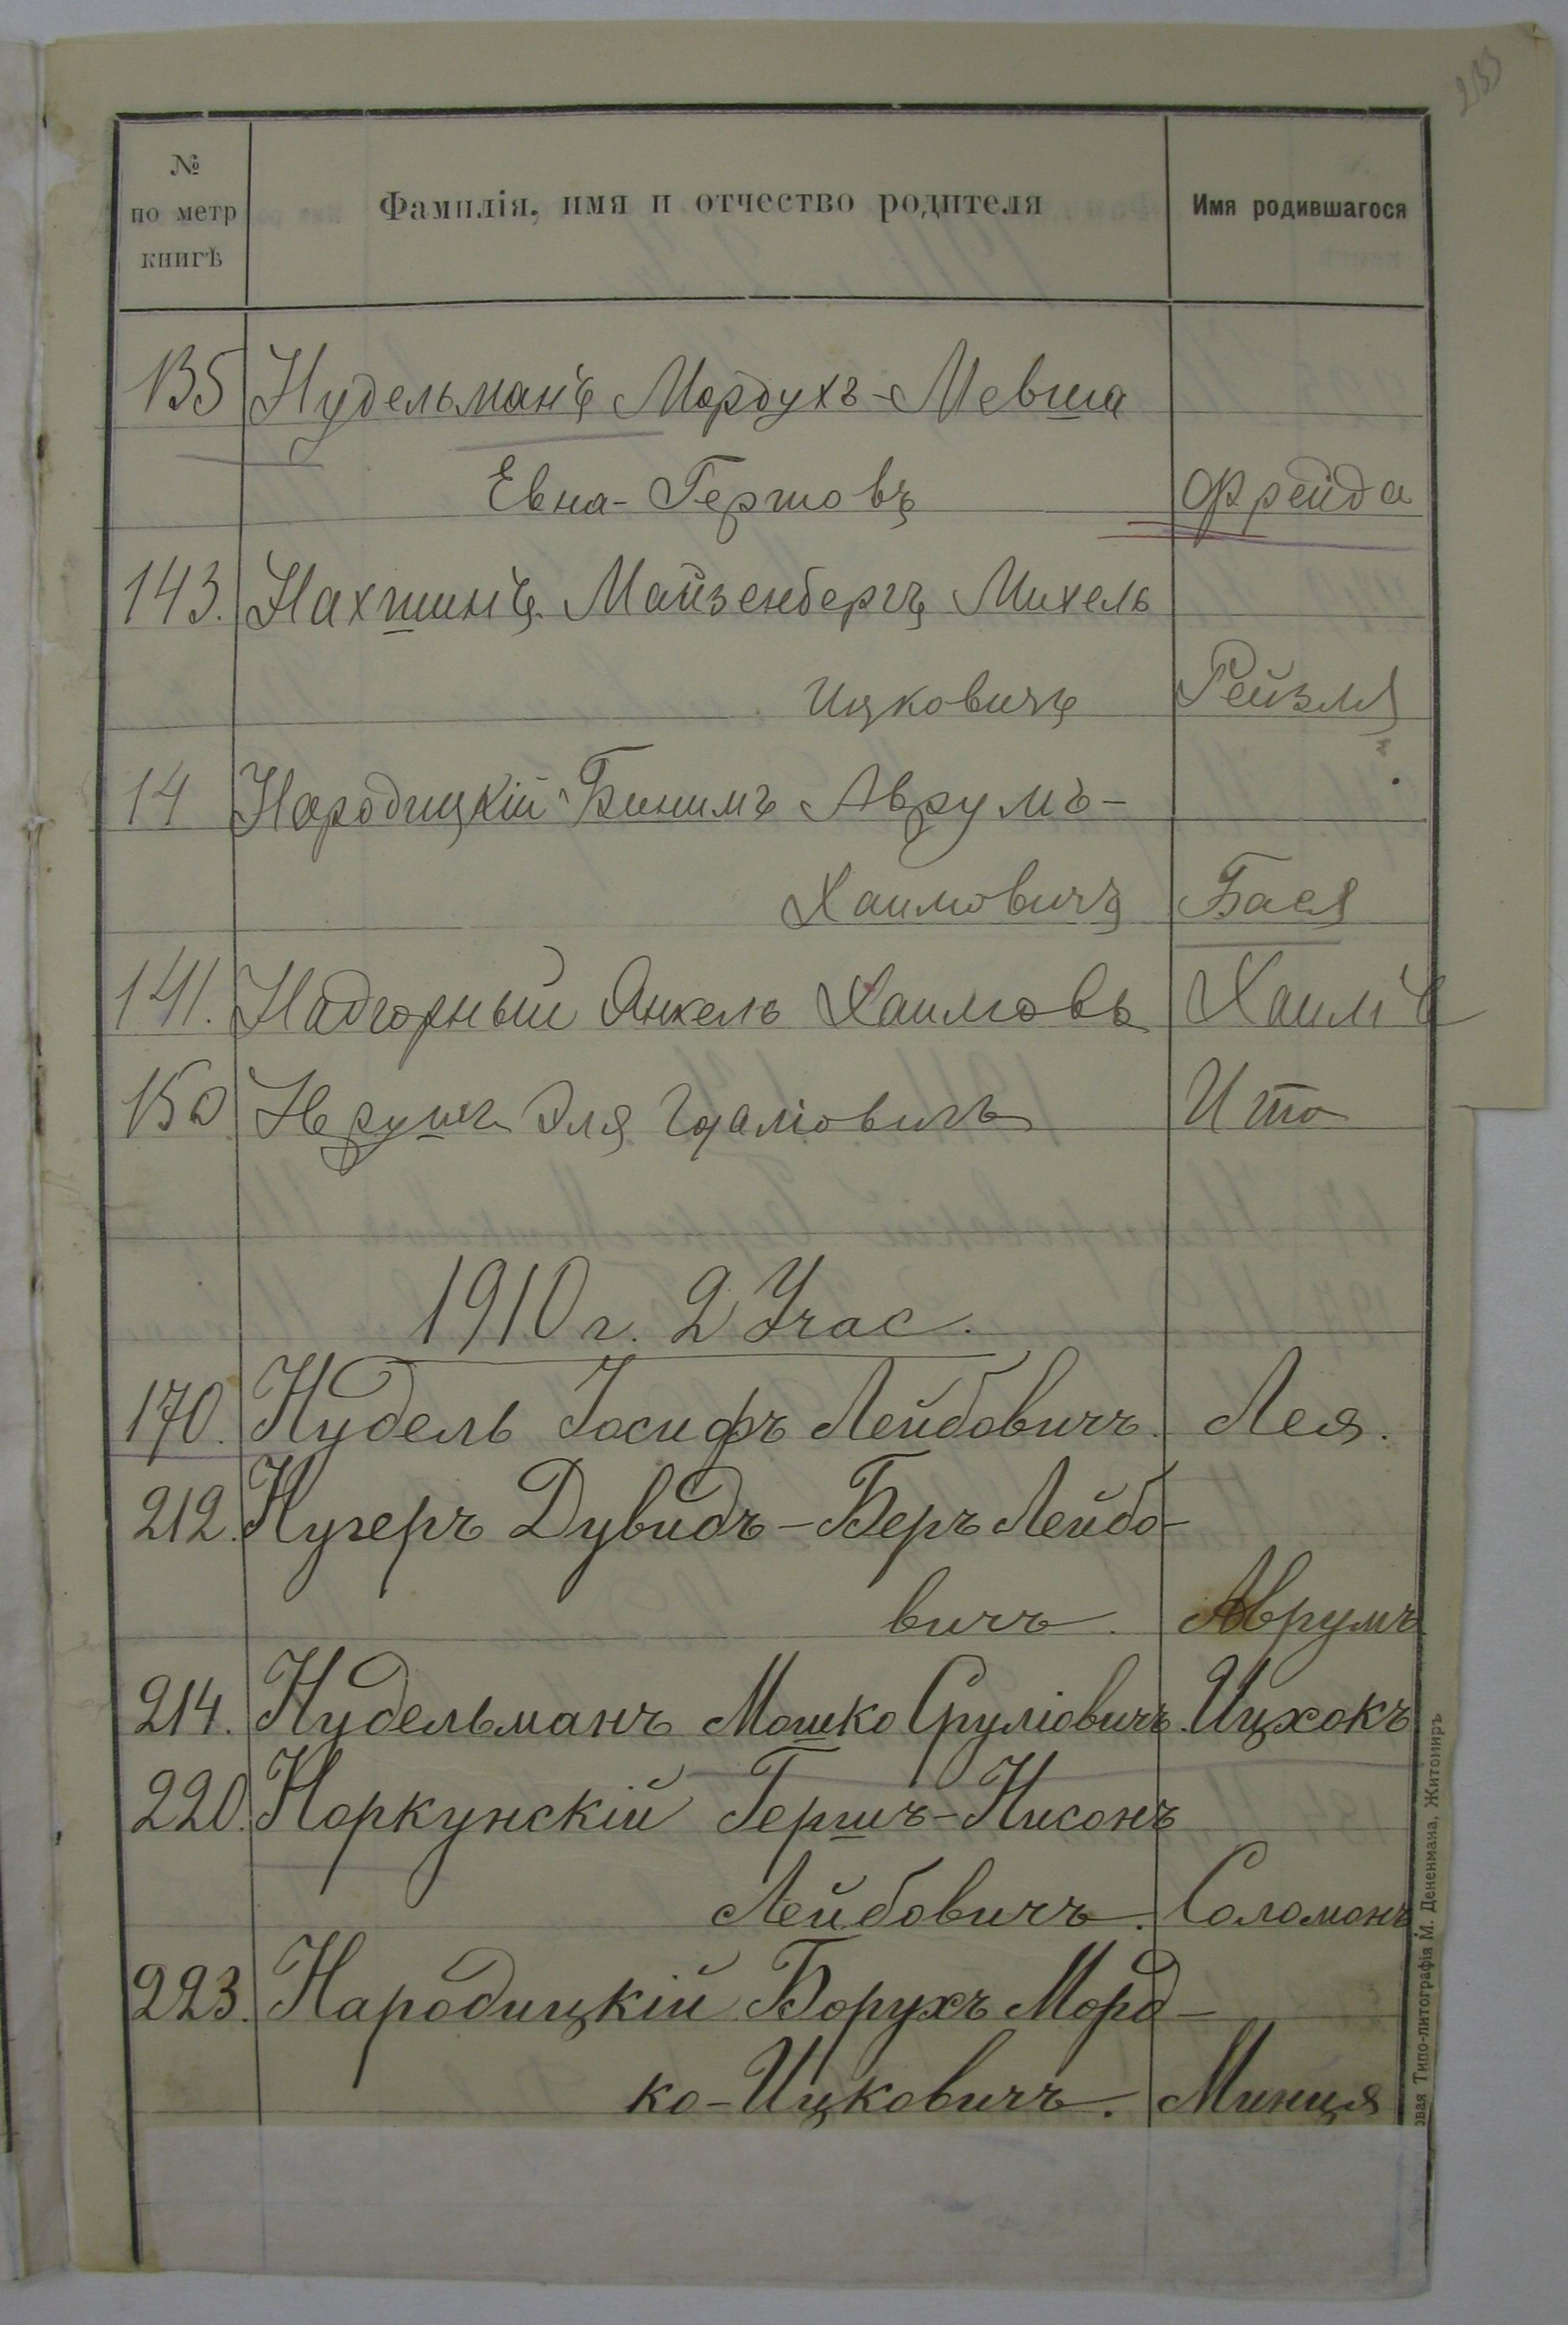 233
№ по метр книгѣ
Фамилія, имя и отчество родителя
Имя родившагося
135 Нудельманъ Мордухъ-Мевша
Евна-Гершовъ Фрейда
143. Нахшинъ Майзенбергъ Михель
Ицковичъ Рейзля
14 Народицкій Бинимъ Аврумъ-
Хаимовичъ Бася
141. Надгорный Янкель Хаимовъ Хаимъ
150 Эля Гдаліовичъ Ита
1910 г. 2 Учас.
170. Нудель Іосифъ Лейбовичъ. Лея.
212. Нугеръ Дувидъ-Беръ Лейбо-
вичъ. Аврумъ
214. Нудельманъ Мошко Сруліовичъ. Ицхокъ
220. Норкунскій Гершъ-Нисонъ
Лейбовичъ. Соломонъ
223. Народицкій Борухъ Морд-
ко-Ицковичъ. Минця
овая Типо-литографія М. Дененмана, Житомиръ